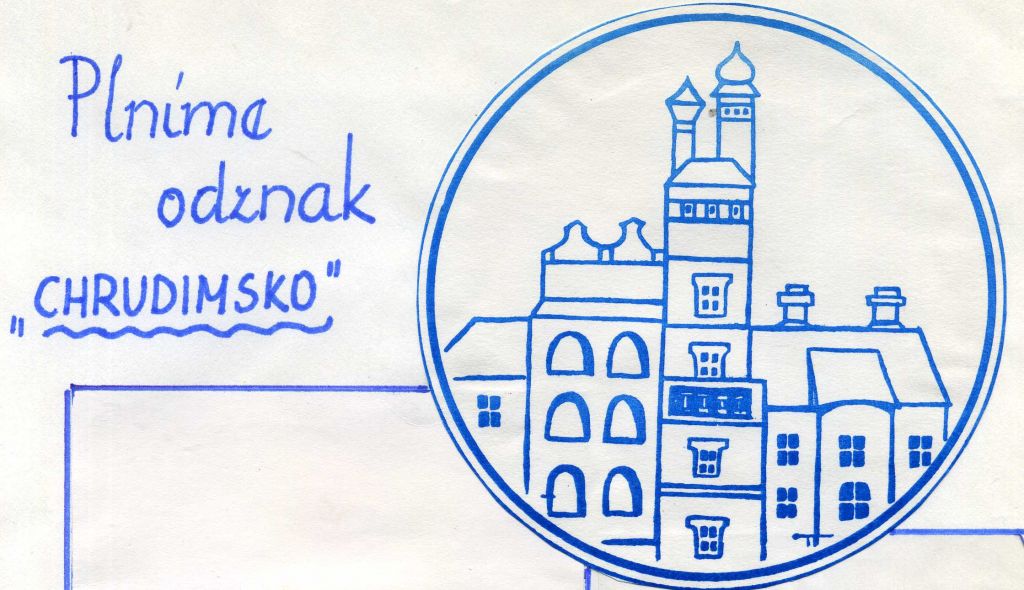 Plníme
odznak
„CHRUDIMSKO"